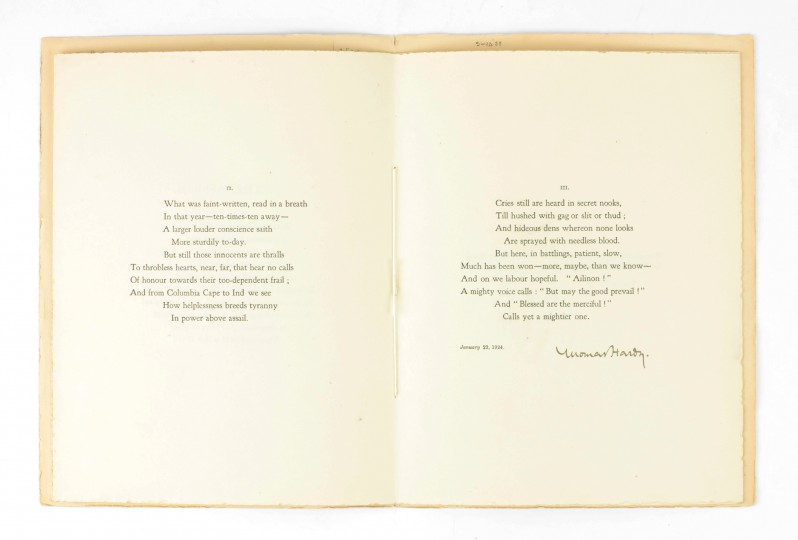 II.
What was faint-written, read in a breath
In that year—ten-times-ten away—
A larger louder conscience saith
More sturdily to-day.
But still those innocents are thralls
To throbless hearts, near, far, that hear no calls
Of honour towards their too-dependent frail ;
And from Columbia Cape to Ind we see
How helplessness breeds tyranny
In power above assail.
III.
Cries still are heard in secret nooks,
Till hushed with gag or slit or thud ;
And hideous dens whereon none looks
Are sprayed with needless blood.
But here, in battlings, patient, slow,
Much has been won—more, maybe, than we know—
And on we labour hopeful. “ Ailinon ! ”
A mighty voice calls : “ But may the good prevail ! ”
And “ Blessed are the merciful ! ”
Calls yet a mightier one.
January 22, 1924.
Thomas Hardy.